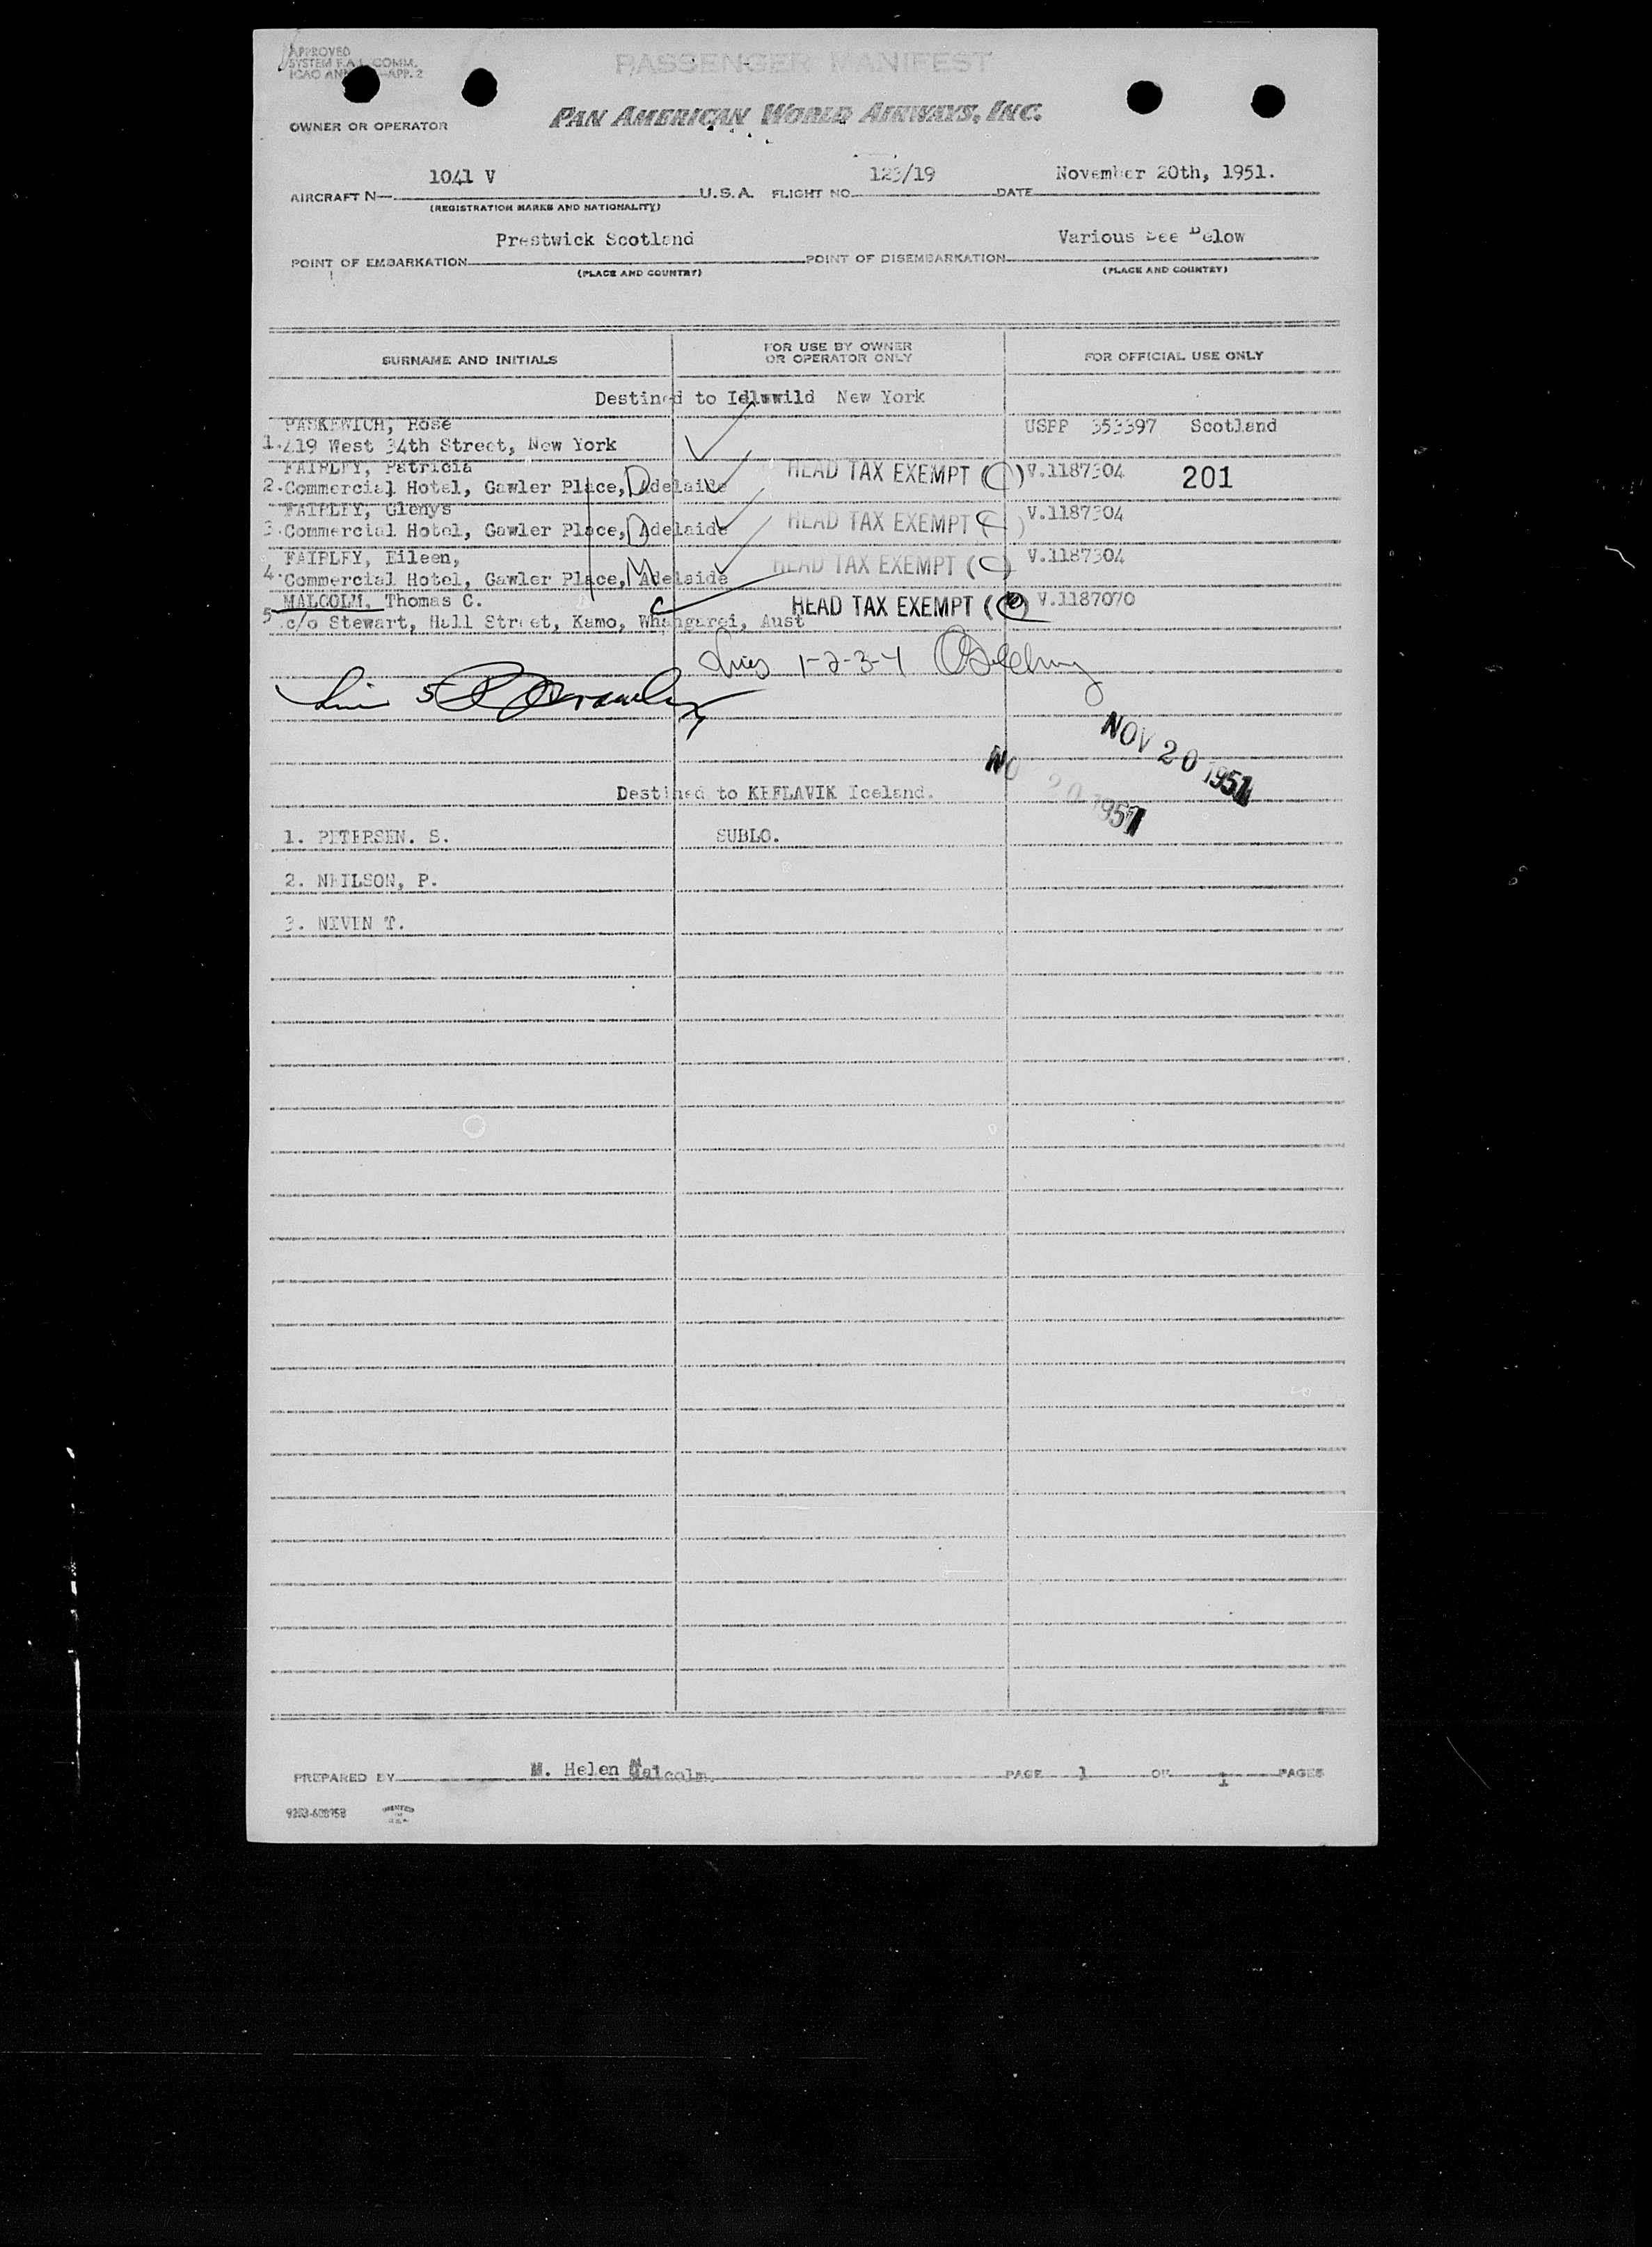 APPROVED
SYSTEM F.A.L. COMM.
ICAO ANN —APP. 2
PASSENGER MANIFEST
PAN AMERICAN WORLD AIRWAYS, INC.
OWNER OR OPERATOR
AIRCRAFT N— 1041 V U.S.A. FLIGHT NO. 123/19 DATE November 20th, 1951.
(REGISTRATION MARKS AND NATIONALITY)
POINT OF EMBARKATION Prestwick Scotland POINT OF DISEMBARKATION Various See Below
(PLACE AND COUNTRY) (PLACE AND COUNTRY)
SURNAME AND INITIALS FOR USE BY OWNER OR OPERATOR ONLY FOR OFFICIAL USE ONLY
Destined to Idlewild New York
PASKEWICH, Rose USPP 353397 Scotland
1. 419 West 34th Street, New York
FAIRLEY, Patricia HEAD TAX EXEMPT (C) V.1187304 201
2. Commercial Hotel, Gawler Place, Adelaide D
FAIRLEY, Glenys HEAD TAX EXEMPT (C) V.1187304
3. Commercial Hotel, Gawler Place, Adelaide D
FAIRLEY, Eileen, HEAD TAX EXEMPT (C) V.1187304
4. Commercial Hotel, Gawler Place, Adelaide M
MALCOLM, Thomas C. C HEAD TAX EXEMPT ( ) V.1187070
5. c/o Stewart, Hall Street, Kamo, Whangarei, Aust
Lines 1-2-3-4
5
NOV 20 1951
NO 20 1951
Destined to KEFLAVIK Iceland.
1. PETERSEN. S. SUBLO.
2. NEILSON, P.
3. NIVEN T.
PREPARED BY M. Helen Malcolm. PAGE 1 OF 1 PAGES